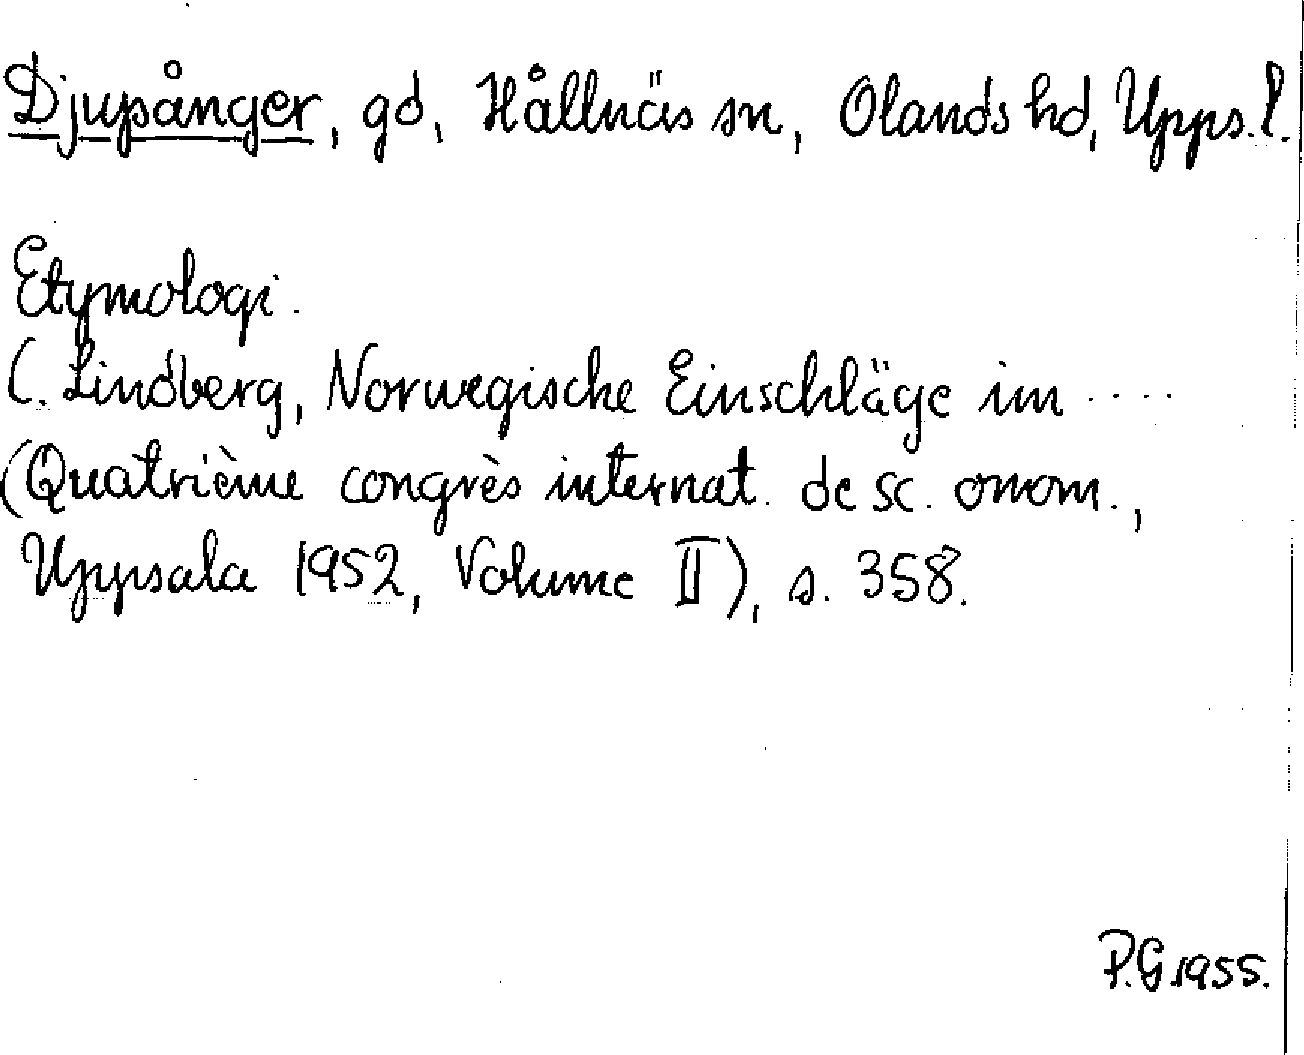 Djupsånger, gd, Hållnäs sn, Olands hd, Upps. l.
Etymologi.
C. Lindberg, Norwegische Einschläge im ....
(Quatrième congrès internat. de sc. onom.,
Uppsala 1952, Volume II), s. 358.
P.G. 1955.